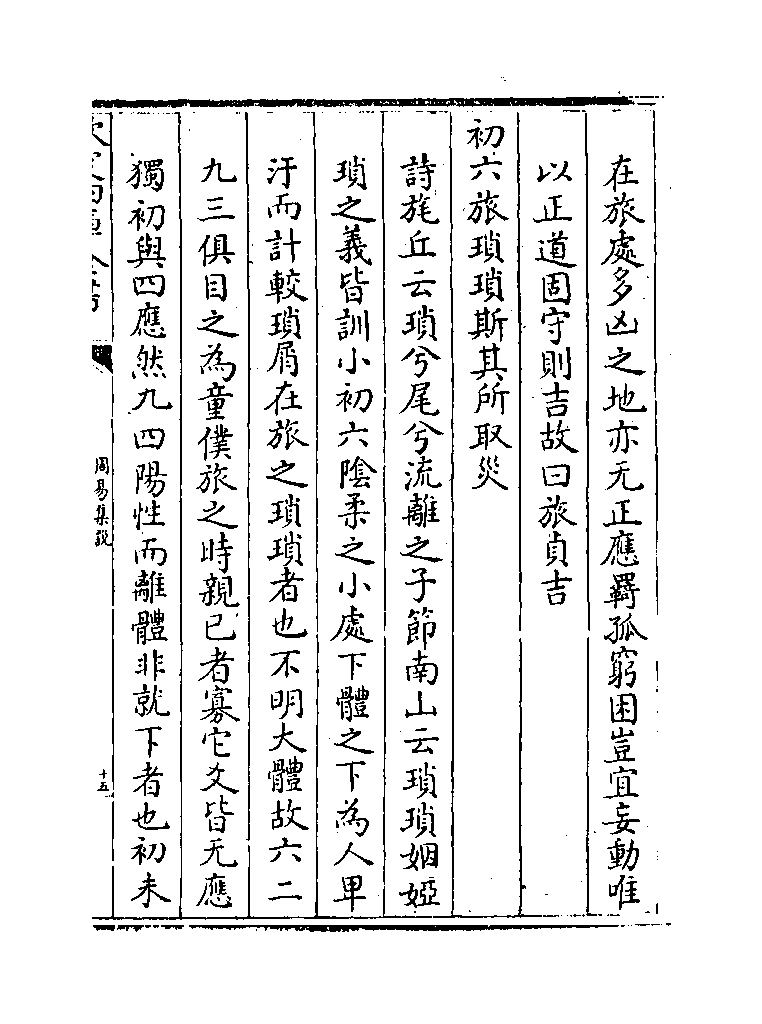 在旅處多凶之地亦无正應羇孤窮困豈宜妄動唯
以正道固守則吉故曰旅貞吉
初六旅瑣瑣斯其所取災
詩旄丘云瑣兮尾兮流離之子節南山云瑣瑣姻婭
瑣之義皆訓小初六陰柔之小處下體之下為人卑
汙而計較瑣屑在旅之瑣瑣者也不明大體故六二
九三俱目之為童僕旅之時親已者寡它爻皆无應
獨初與四應然九四陽性而離體非就下者也初未
周易集説
十五